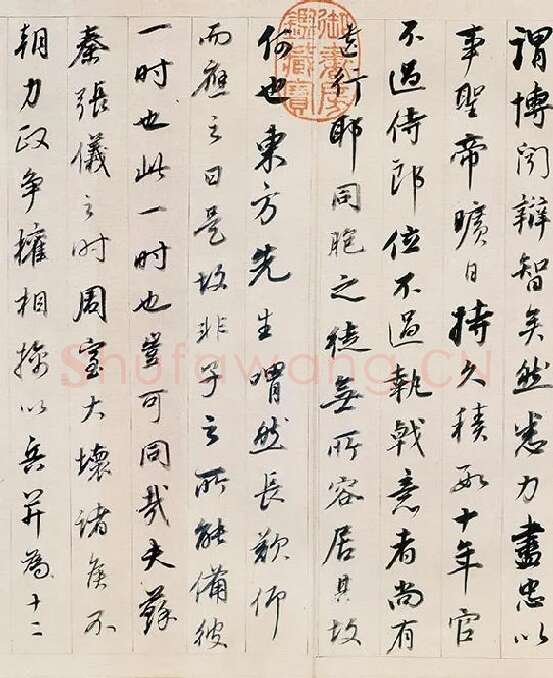 謂博聞辯智矣然悉力盡忠以
事聖帝曠日持久積數十年官
不過侍郎位不過執戟意者尚有
遺行耶同胞之徒無所容居其故
何也東方先生喟然長歎仰
而應之曰是故非子之所能備彼
一时也此一时也豈可同哉夫蘇
秦張儀之时周室大壞諸侯不
朝力政争權相擒以兵并為十二
御書房
鑑藏寶
Shufawang.CN